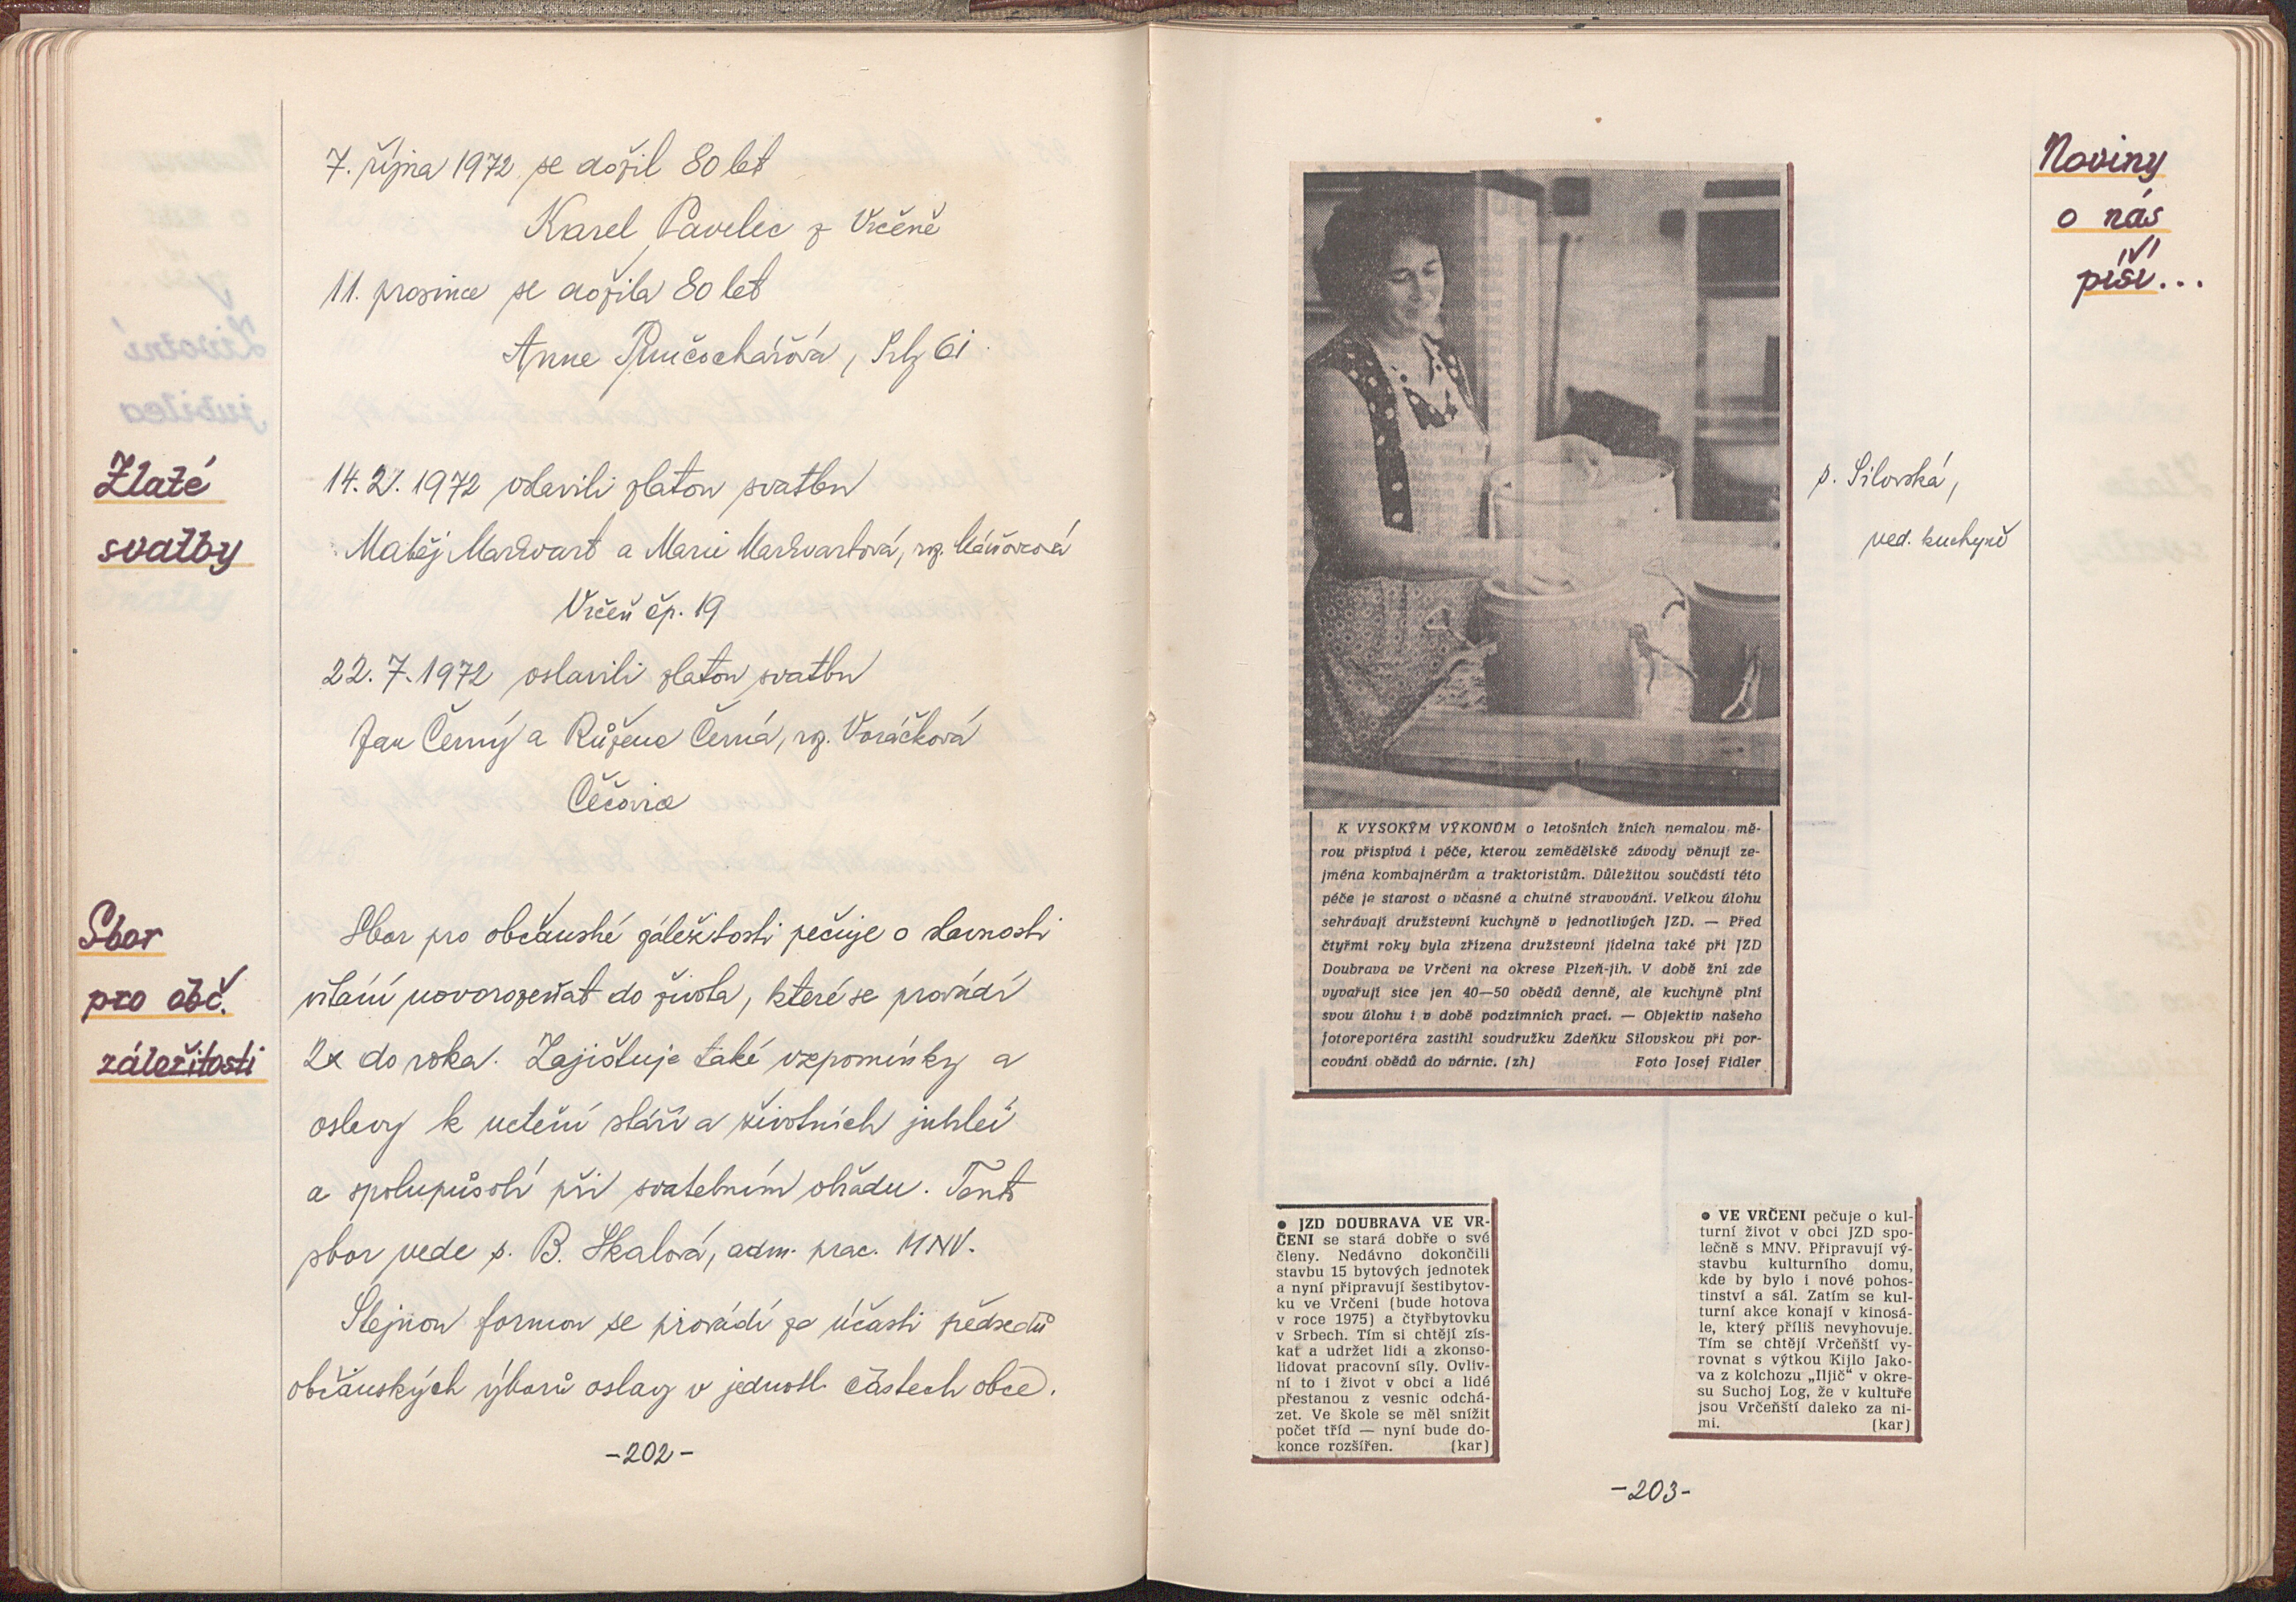 7. října 1972 se dožil 80 let
Karel Pavelec z Vrčeně
11. prosince se dožila 80 let
Anna , Srby 61
Zlaté
svatby
14. 1972 oslavili zlatou svatbu
Matěj Markvart a Marie Markvartová, roz.
Vrčeň čp. 19
22. 7. 1972 oslavili zlatou svatbu
Jan Černý a Růžena Černá, roz. Voráčková
Čečovice
Sbor
pro obč.
záležitosti
Sbor pro občanské záležitosti pečuje o slavnosti
vítání novorozeňat do života, které se provádí
2x do roka. Zajišťuje také vzpomínky a
oslavy k uctění stáří a životních jubileí
a spolupůsobí při svatebním obřadu. Tento
sbor vede s. B. Skalová, adm. prac. MNV.
Stejnou formou se provádí za účasti předsedů
občanských výborů oslavy v jednotl. částech obce.
-202-
Noviny
o nás
píší...
s. Silovská,
ved. kuchyně
K VYSOKÝM VÝKONŮM o letošních žních nemalou mě-
rou přispívá i péče, kterou zemědělské závody věnují ze-
jména kombajnérům a traktoristům. Důležitou součástí této
péče je starost o včasné a chutné stravování. Velkou úlohu
sehrávají družstevní kuchyně v jednotlivých JZD. — Před
čtyřmi roky byla zřízena družstevní jídelna také při JZD
Doubrava ve Vrčeni na okrese Plzeň-jih. V době žní zde
vyvařují sice jen 40—50 obědů denně, ale kuchyně plní
svou úlohu i v době podzimních prací. — Objektiv našeho
fotoreportéra zastihl soudružku Zdeňku Silovskou při por-
cování obědů do várnic. (zh) Foto Josef Fidler
● JZD DOUBRAVA VE VR-
ČENI se stará dobře o své
členy. Nedávno dokončili
stavbu 15 bytových jednotek
a nyní připravují šestibytov-
ku ve Vrčeni (bude hotova
v roce 1975) a čtyřbytovku
v Srbech. Tím si chtějí zís-
kat a udržet lidi a zkonso-
lidovat pracovní síly. Ovliv-
ní to i život v obci a lidé
přestanou z vesnic odchá-
zet. Ve škole se měl snížit
počet tříd — nyní bude do-
konce rozšířen. (kar)
● VE VRČENI pečuje o kul-
turní život v obci JZD spo-
lečně s MNV. Připravují vý-
stavbu kulturního domu,
kde by bylo i nové pohos-
tinství a sál. Zatím se kul-
turní akce konají v kinosá-
le, který příliš nevyhovuje.
Tím se chtějí Vrčeňští vy-
rovnat s výtkou Kijlo Jako-
va z kolchozu „Iljič“ v okre-
su Suchoj Log, že v kultuře
jsou Vrčeňští daleko za ni-
mi. (kar)
-203-